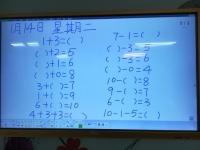 1月14日 星期二
1+3=( )
( )+2=5
( )+1=6
( )+0=8
3+( )=7
1+( )=9
6+( )=10
4+3+3=( )
7-1=( )
( )-3=5
( )-3=6
( )-0=4
10-( )=8
9-( )=7
6-( )=3
10-1-5=( )